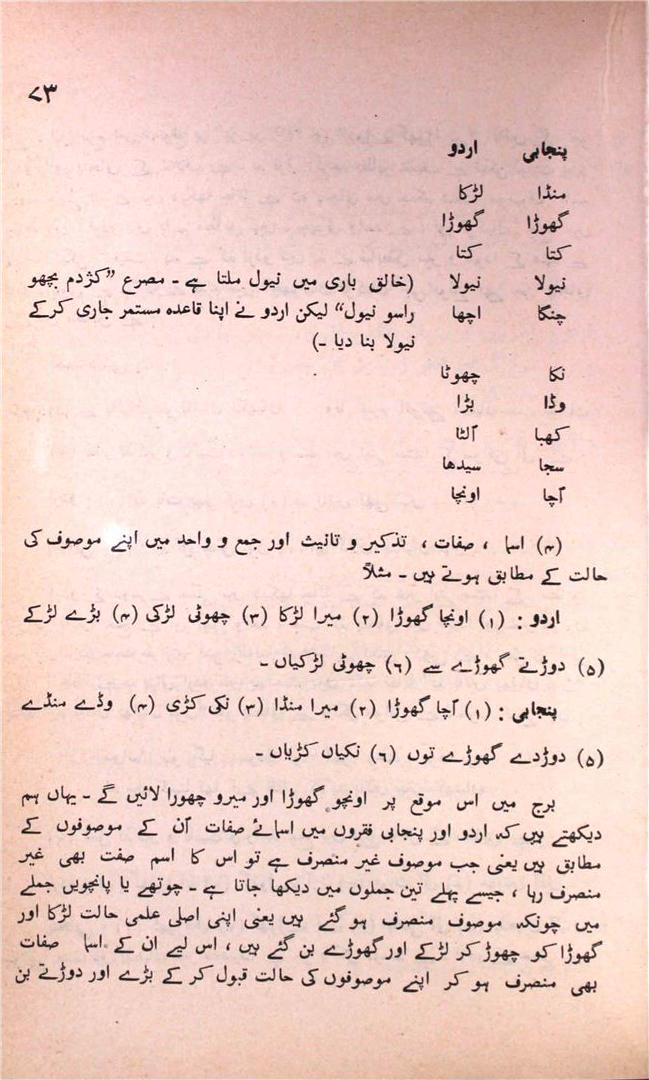 ۷۳
پنجابی اردو
منڈا لڑکا
گھوڑا گھوڑا
کتا کتا
نیولا نیولا (خالق باری میں نیول ملتا ہے ۔ مصرع ”کژدم بچھو
چنگا اچھا راسو نیول“ لیکن اردو نے اپنا قاعدہ مستمر جاری کرکے
نیولا بنا دیا ۔)
نکا چھوٹا
وڈا بڑا
کھبا اُلٹا
سجا سیدھا
اُچا اونچا
(۴) اسما ، صفات ، تذکیر و تانیث اور جمع و واحد میں اپنے موصوف کی
حالت کے مطابق ہوتے ہیں ۔ مثلاً
اردو : (۱) اونچا گھوڑا (۲) میرا لڑکا (۳) چھوٹی لڑکی (۴) بڑے لڑکے
(۵) دوڑتے گھوڑے سے (۶) چھوٹی لڑکیاں ۔
پنجابی : (۱) اُچا گھوڑا (۲) میرا منڈا (۳) نکی کڑی (۴) وڈے منڈے
(۵) دوڑدے گھوڑے توں (۶) نکیاں کڑیاں ۔
برج میں اس موقع پر اونچو گھوڑا اور میرو چھورا لائیں گے ۔ یہاں ہم
دیکھتے ہیں کہ اردو اور پنجابی فقروں میں اسمائے صفات اُن کے موصوفوں کے
مطابق ہیں یعنی جب موصوف غیر منصرف ہے تو اس کا اسم صفت بھی غیر
منصرف رہا ، جیسے پہلے تین جملوں میں دیکھا جاتا ہے ۔ چوتھے یا پانچویں جملے
میں چونکہ موصوف منصرف ہو گئے ہیں یعنی اپنی اصلی علمی حالت لڑکا اور
گھوڑا کو چھوڑ کر لڑکے اور گھوڑے بن گئے ہیں ، اس لیے ان کے اسما صفات
بھی منصرف ہو کر اپنے موصوفوں کی حالت قبول کر کے بڑے اور دوڑتے بن